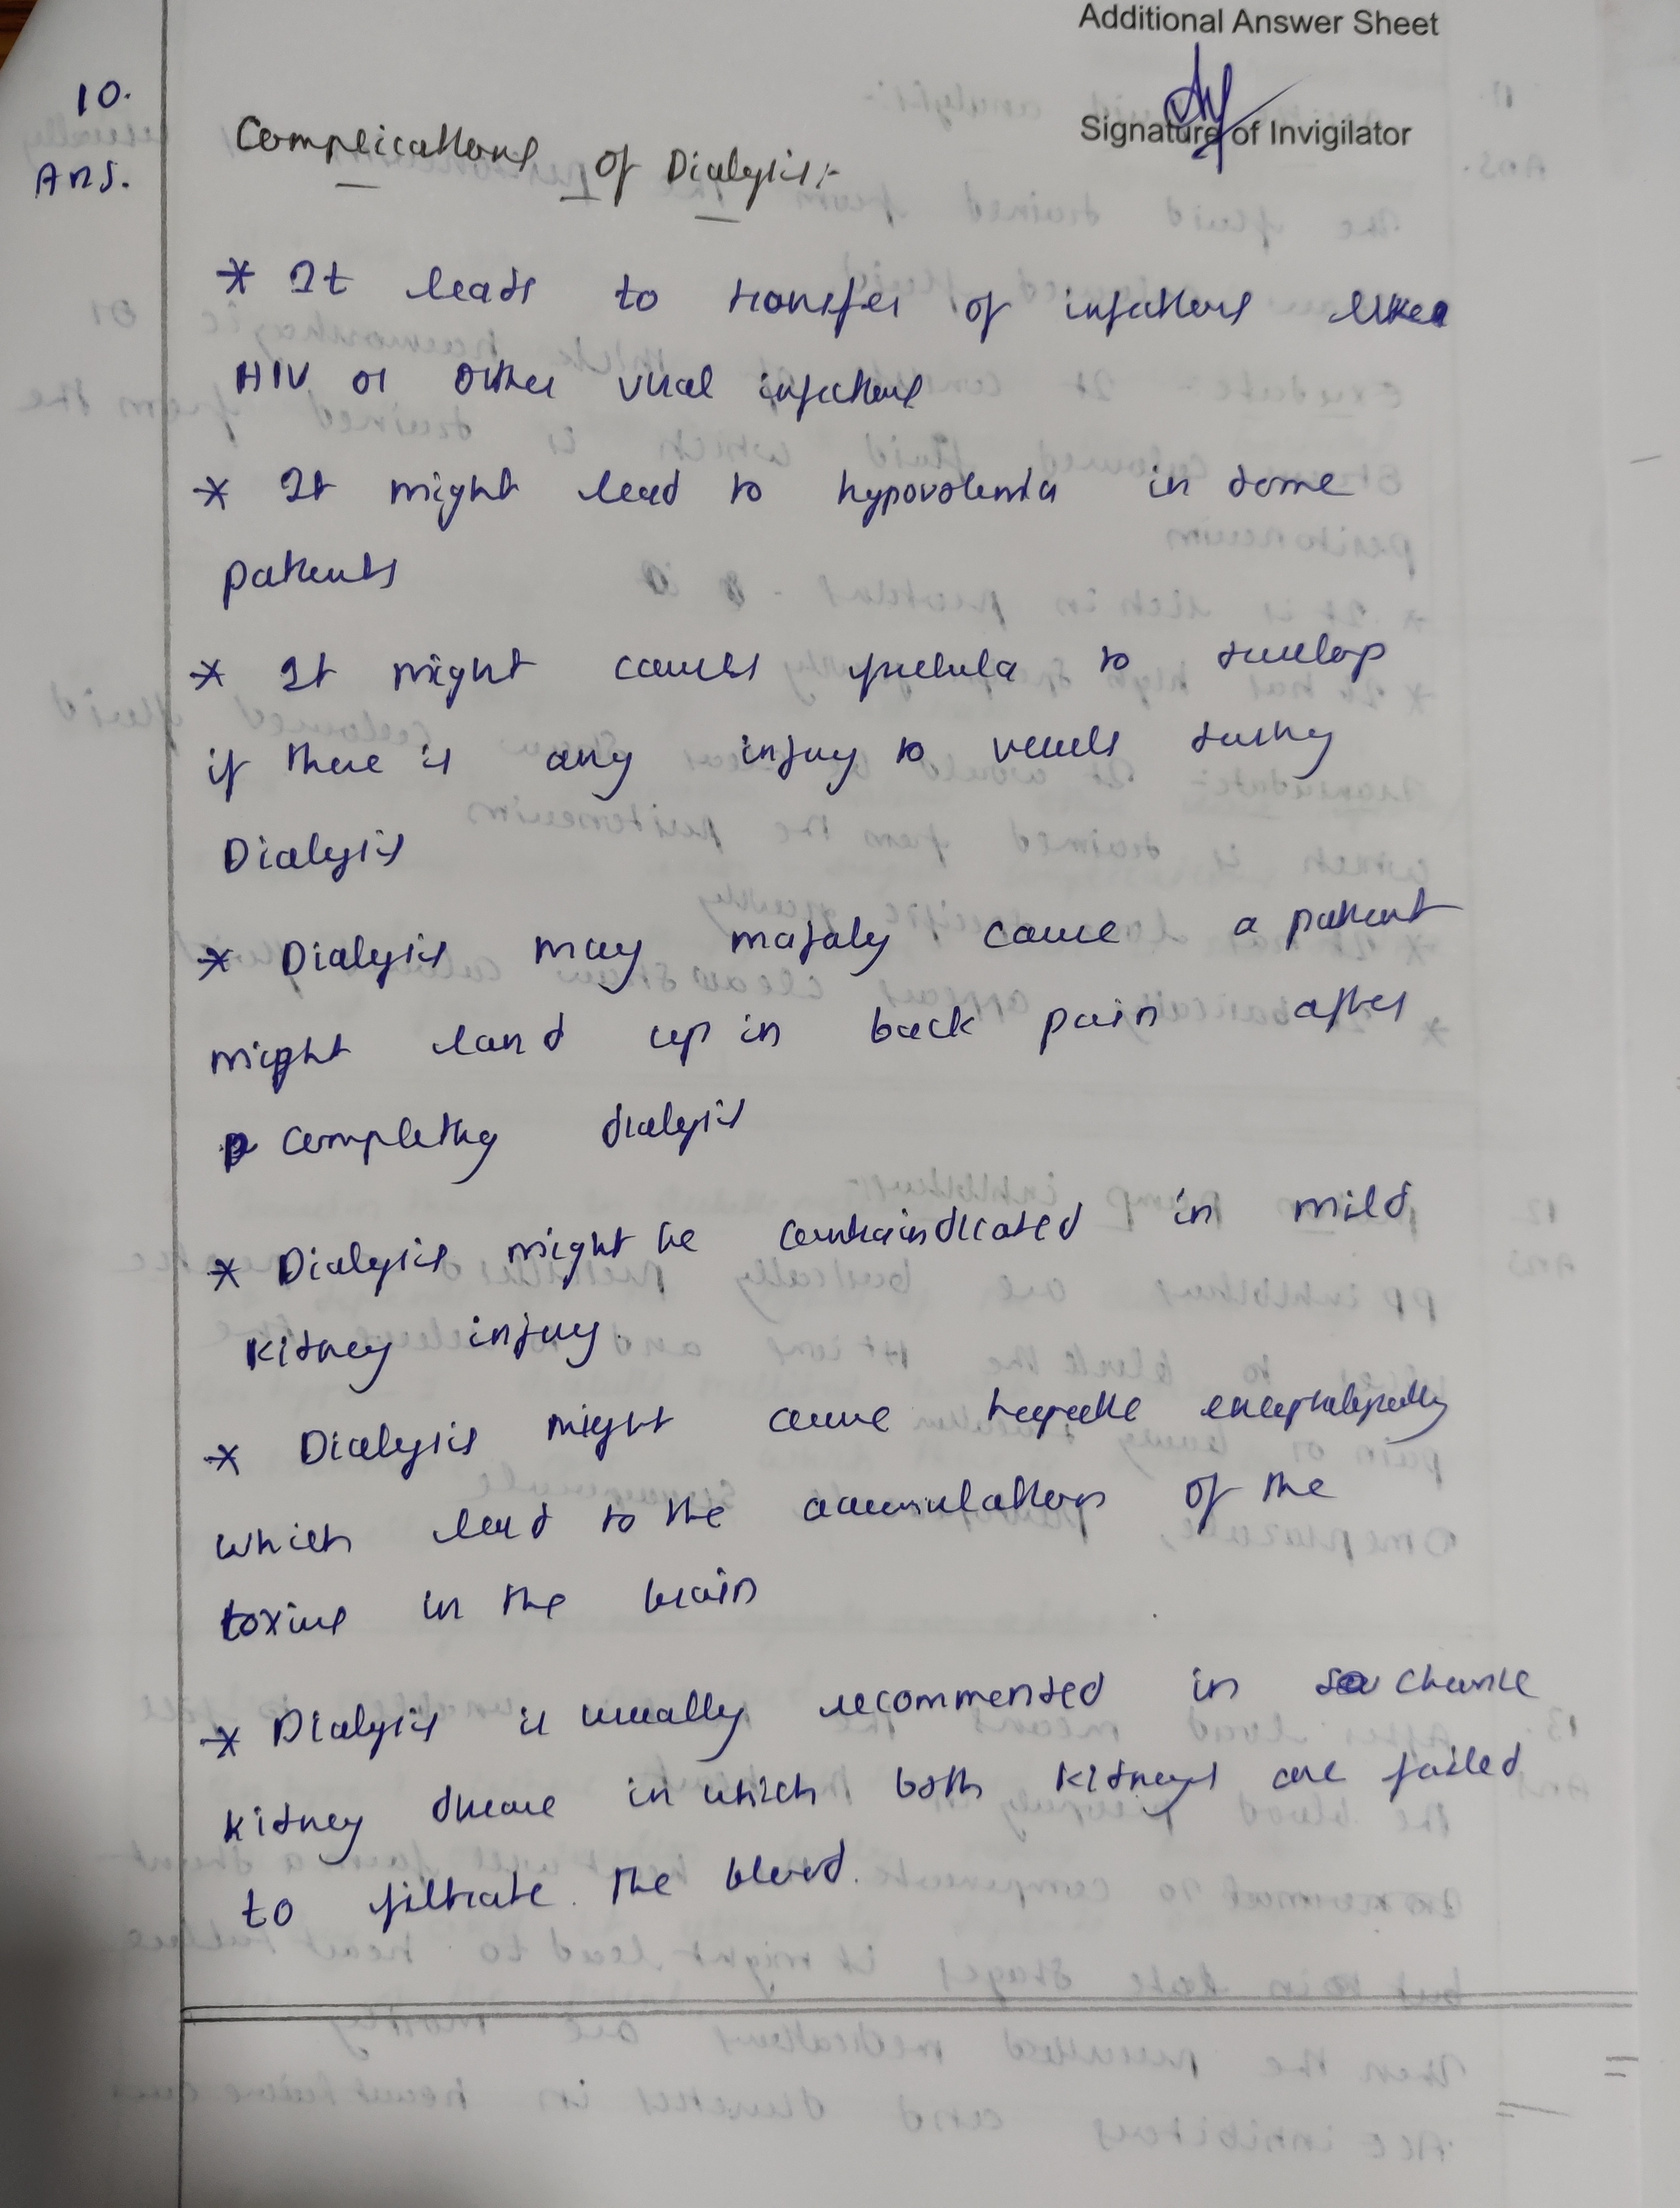 Additional Answer Sheet
Signature of Invigilator
10.
Ans.
Complications of Dialysis:-
* It leads to transfer of infections like
HIV or other viral infections
* It might lead to hypovolemia in some
patients
* It might causes fistula to develop
if there is any injury to vessels during
Dialysis
* Dialysis may majorly cause a patient
might land up in back pain after
completing dialysis
* Dialysis might be contraindicated in mild
kidney injury.
* Dialysis might cause hepatic encephalopathy
which lead to the accumulation of the
toxins in the brain
* Dialysis is usually recommended in chronic
kidney disease in which both kidneys are failed
to filtrate the blood.